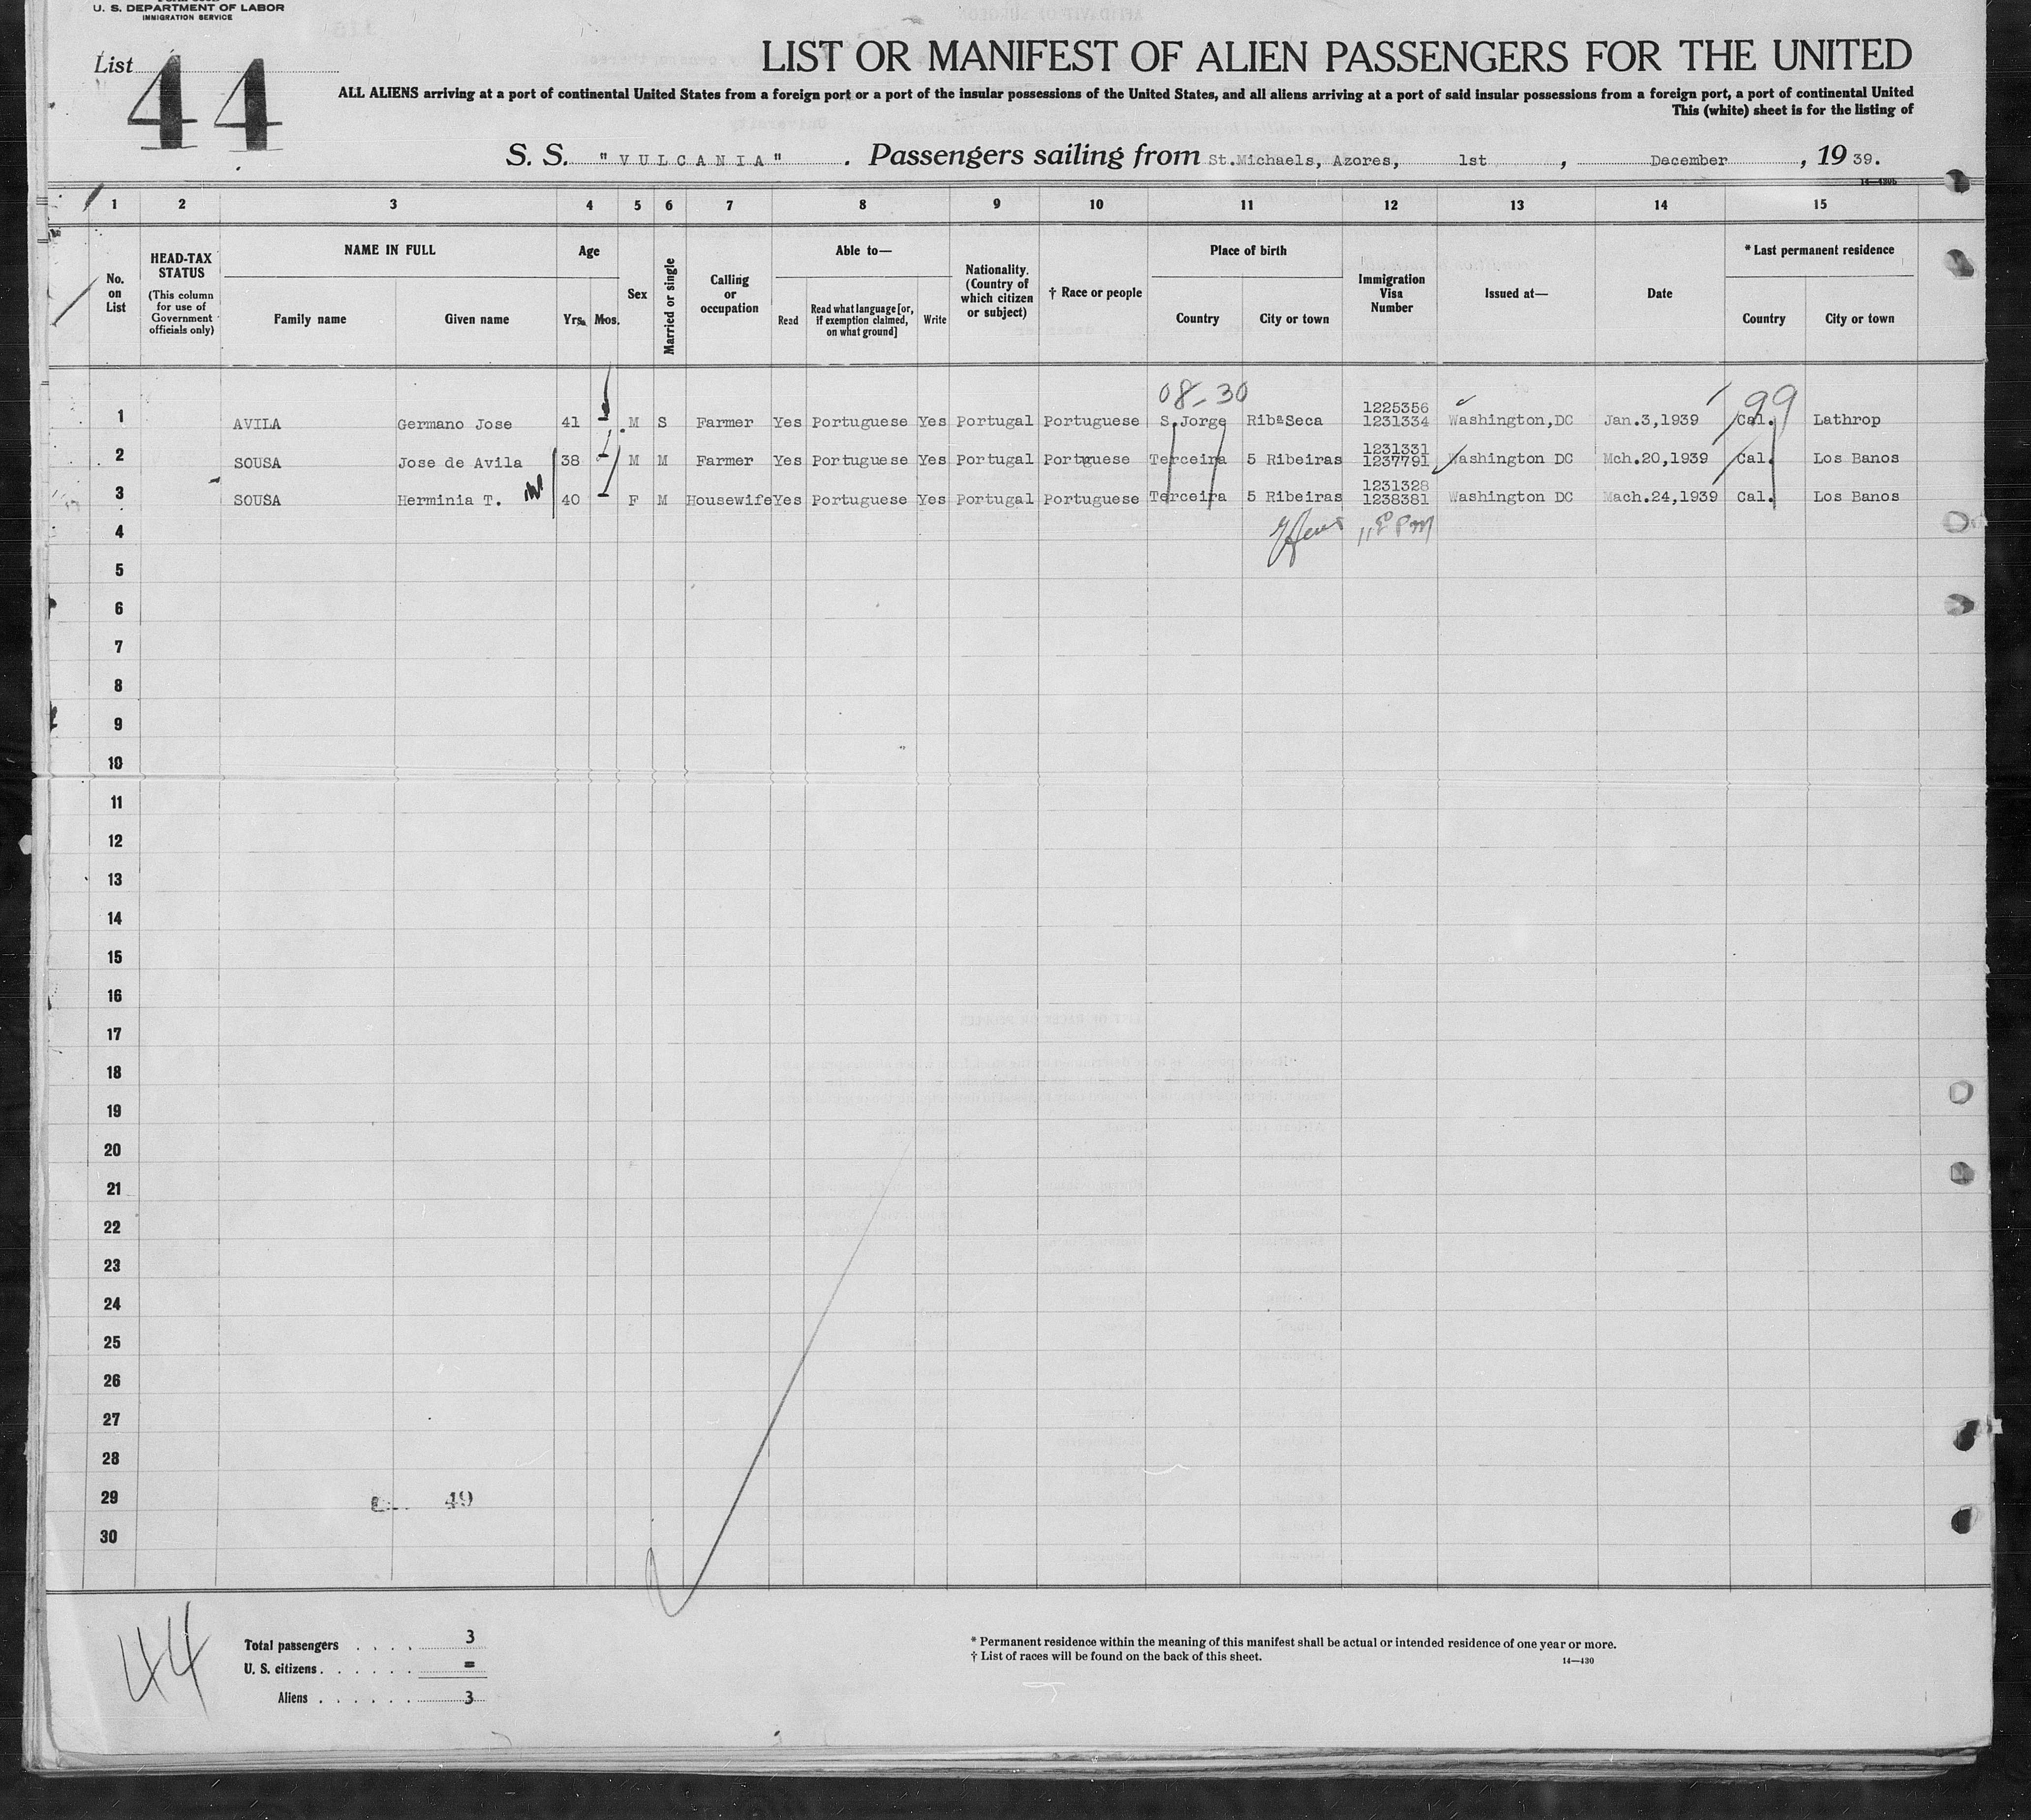 U. S. DEPARTMENT OF LABOR
IMMIGRATION SERVICE
List 44
LIST OR MANIFEST OF ALIEN PASSENGERS FOR THE UNITED
ALL ALIENS arriving at a port of continental United States from a foreign port or a port of the insular possessions of the United States, and all aliens arriving at a port of said insular possessions from a foreign port, a port of continental United
This (white) sheet is for the listing of
S. S. "VULCANIA" . Passengers sailing from St.Michaels, Azores, 1st , December , 19 39.
14—430b
1 2 3 4 5 6 7 8 9 10 11 12 13 14 15
No. on List
HEAD-TAX STATUS (This column for use of Government officials only)
NAME IN FULL
Family name Given name
Age
Yrs. Mos.
Sex
Married or single
Calling or occupation
Able to—
Read
Read what language [or, if exemption claimed, on what ground]
Write
Nationality. (Country of which citizen or subject)
† Race or people
Place of birth
Country City or town
Immigration Visa Number
Issued at—
Date
* Last permanent residence
Country City or town
08-30 99
1225356
1 AVILA Germano Jose 41 - M S Farmer Yes Portuguese Yes Portugal Portuguese S.Jorge RibªSeca 1231334 Washington,DC Jan.3,1939 Cal. Lathrop
1231331
2 SOUSA Jose de Avila 38 - M M Farmer Yes Portuguese Yes Portugal Portuguese Terceira 5 Ribeiras 1237791 Washington DC Mch.20,1939 Cal. Los Banos
1231328
3 SOUSA Herminia T. 40 - F M Housewife Yes Portuguese Yes Portugal Portuguese Terceira 5 Ribeiras 1238381 Washington DC Mach.24,1939 Cal. Los Banos
4
5
6
7
8
9
10
11
12
13
14
15
16
17
18
19
20
21
22
23
24
25
26
27
28
29 49
30
44
Total passengers . . . . 3
U. S. citizens . . . . . . =
Aliens . . . . . . 3
* Permanent residence within the meaning of this manifest shall be actual or intended residence of one year or more.
† List of races will be found on the back of this sheet.
14—430